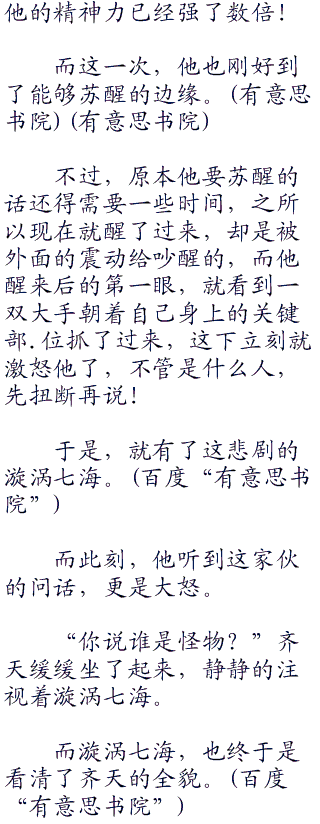 他的精神力已经强了数倍！
而这一次，他也刚好到
了能够苏醒的边缘。(有意思
书院)(有意思书院)
不过，原本他要苏醒的
话还得需要一些时间，之所
以现在就醒了过来，却是被
外面的震动给吵醒的，而他
醒来后的第一眼，就看到一
双大手朝着自己身上的关键
部.位抓了过来，这下立刻就
激怒他了，不管是什么人，
先扭断再说！
于是，就有了这悲剧的
漩涡七海。(百度“有意思书
院”)
而此刻，他听到这家伙
的问话，更是大怒。
“你说谁是怪物？”齐
天缓缓坐了起来，静静的注
视着漩涡七海。
而漩涡七海，也终于是
看清了齐天的全貌。(百度
“有意思书院”)